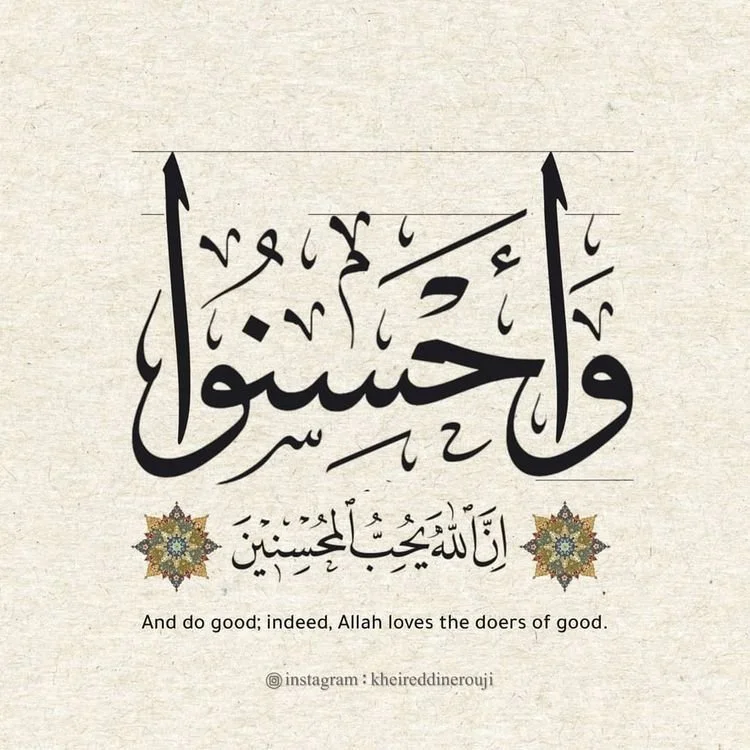 وَأَحْسِنُوا
اِنَّ اللّٰهَ يُحِبُّ الْمُحْسِنِيْنَ
And do good; indeed, Allah loves the doers of good.
instagram : kheireddinerouji